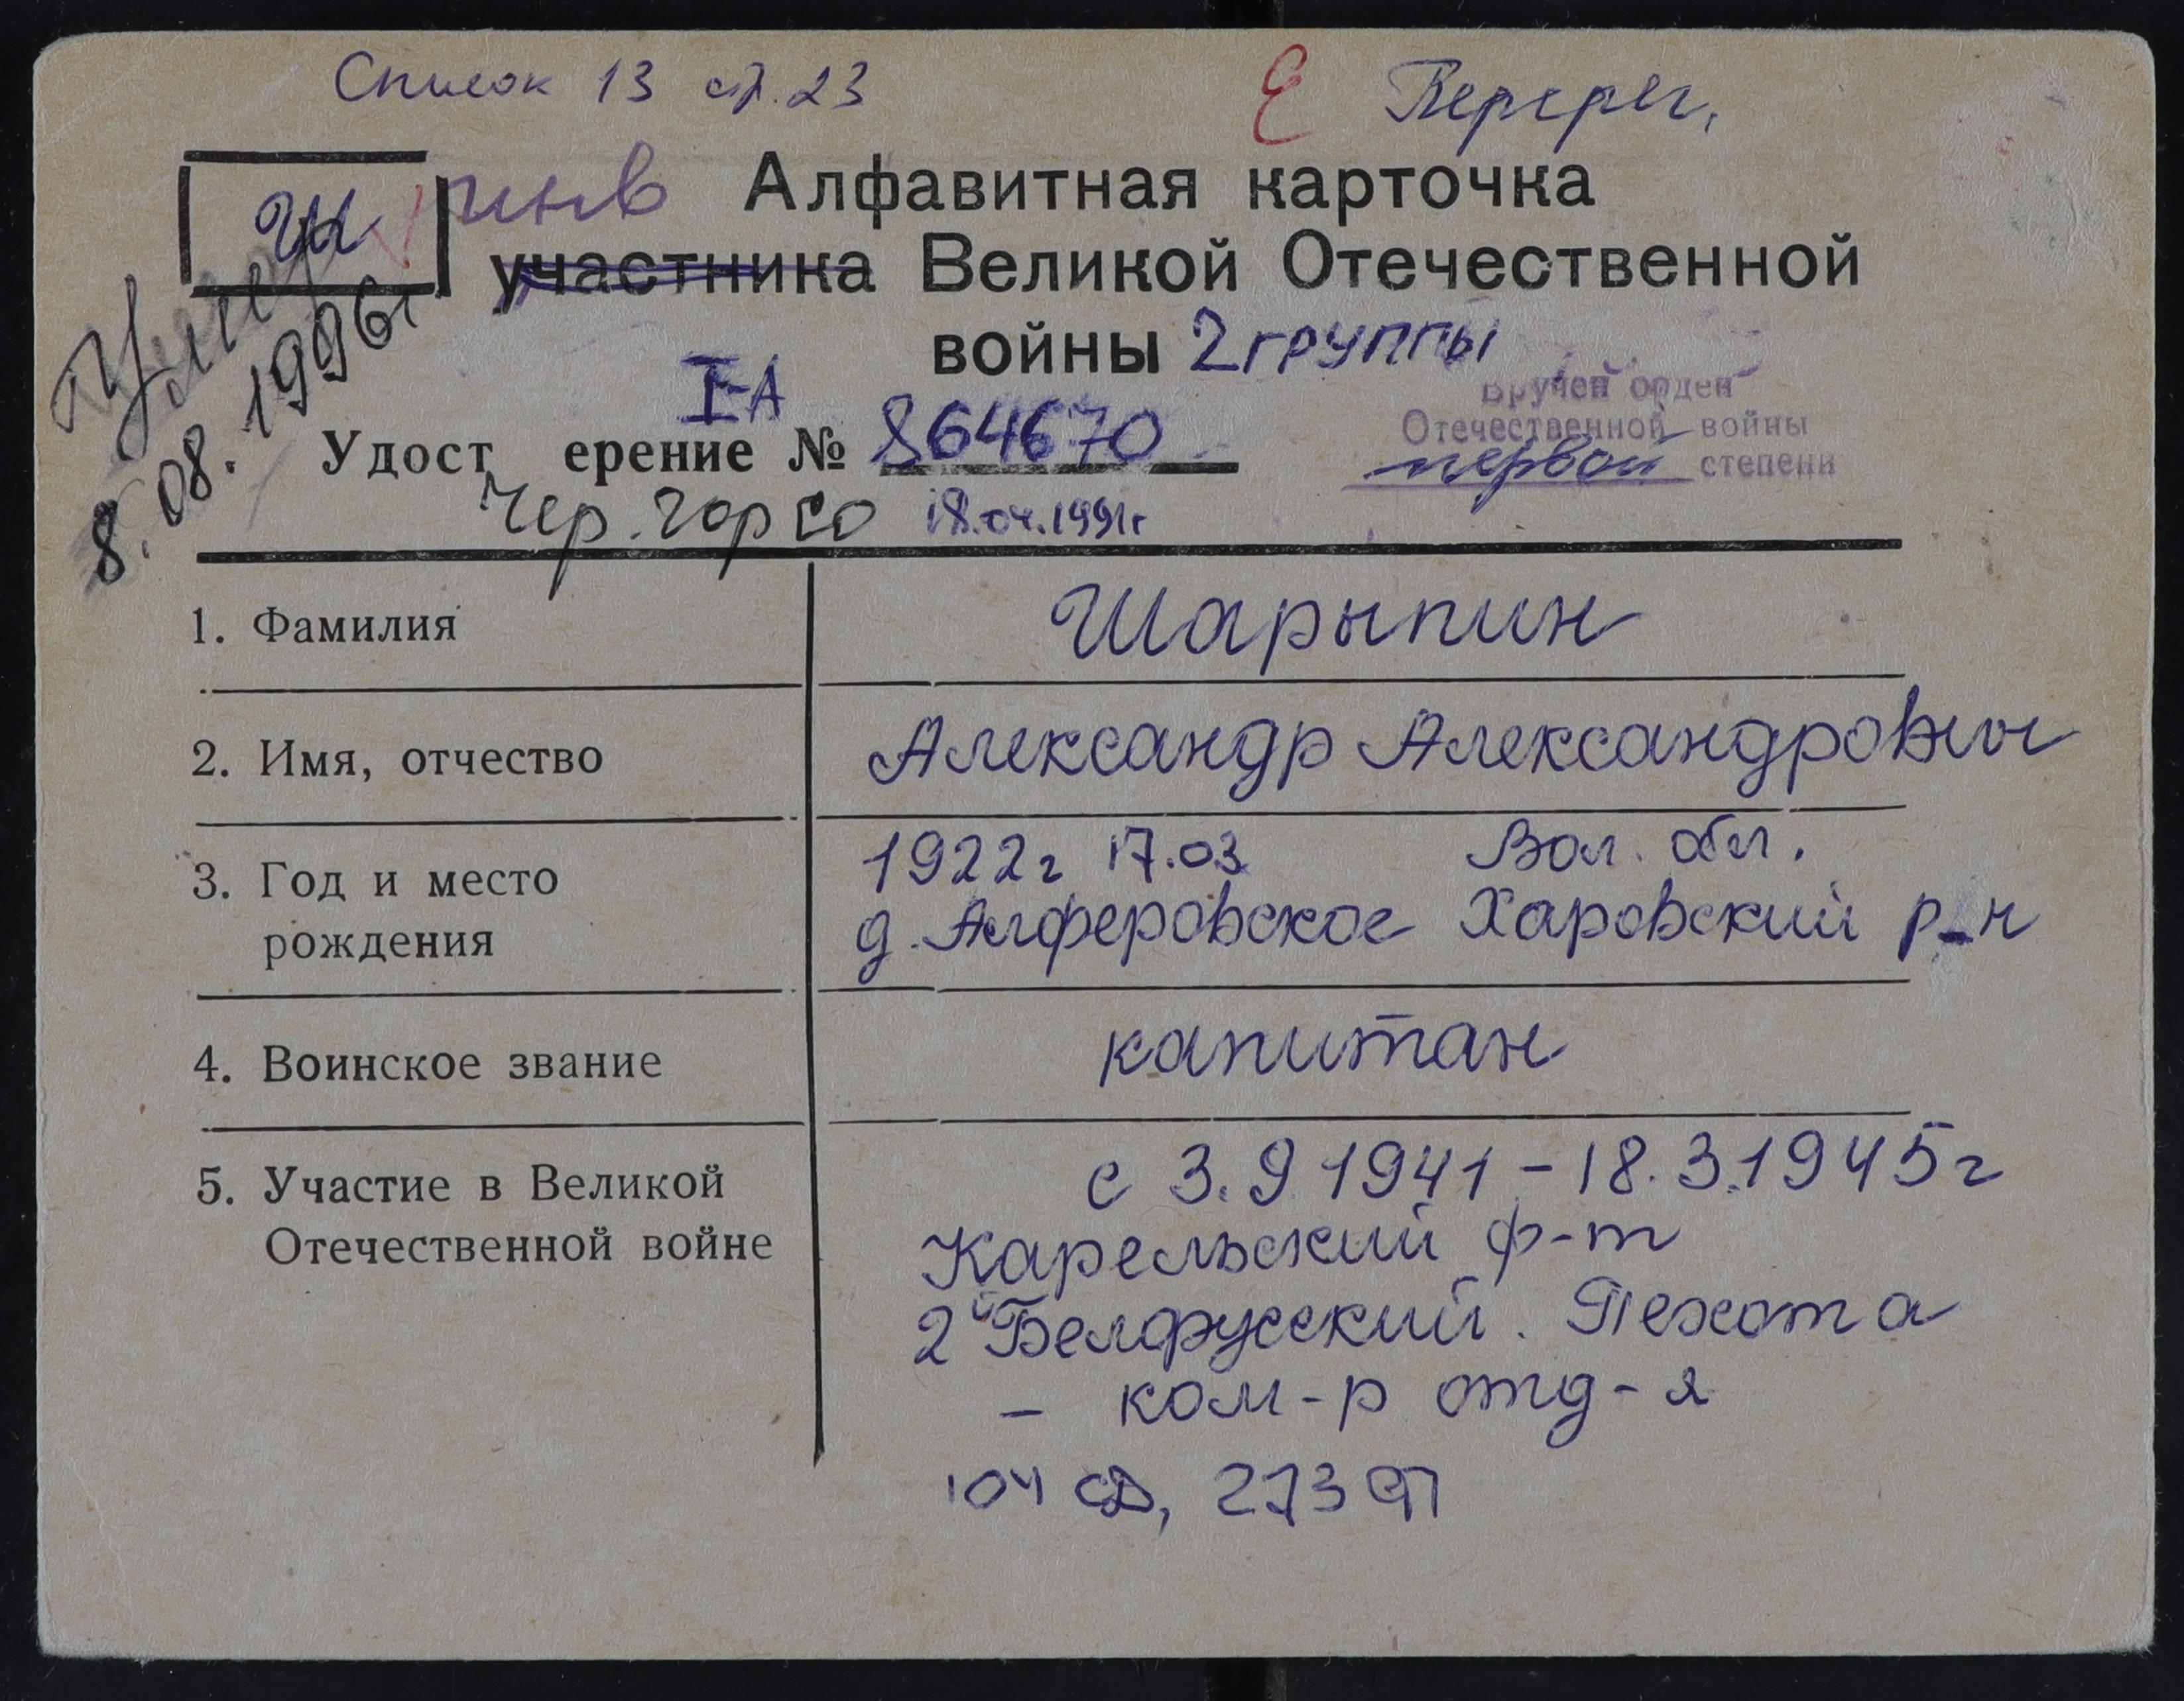 Список 13 стр. 23
Е Перерег.
Ш
инв Алфавитная карточка
участника Великой Отечественной
войны 2 группы
Умер
8.08.1996г
I-А
Удост ерение № 864670
Вручен орден
Отечественной войны
первой степени
Чер. горсо 18.04.1991г
1. Фамилия
Шарыпин
2. Имя, отчество
Александр Александрович
3. Год и место
рождения
1922г 17.03 Вол. обл.
д. Алферовское Харовский р-н
4. Воинское звание
капитан
5. Участие в Великой
Отечественной войне
с 3.9 1941 - 18.3.1945г
Карельский ф-т
2й Белорусский. Пехота
- ком-р отд-я
104 СД, 273 СП